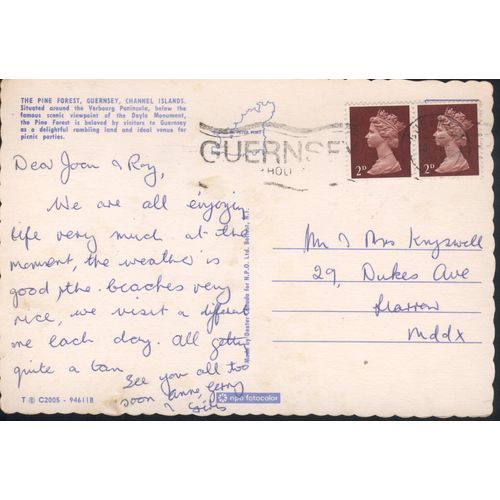 THE PINE FOREST, GUERNSEY, CHANNEL ISLANDS.
Situated around the Verbourg Peninsula, below the
famous scenic viewpoint of the Doyle Monument,
the Pine Forest is beloved by visitors to Guernsey
as a delightful rambling land and ideal venue for
picnic parties.
ST PETER PORT
GUERNSEY
HOLI
2D
2D
Dear Joan & Roy,
We are all enjoying
life very much at the
moment, the weather is
good, the beaches very
nice, we visit a different
one each day. All getting
quite a tan
See you all too
soon Anne Gerry
Made by Dexter Canada for N.P.O. Ltd. Belfast, N.I.
Mr & Mrs Kingswell
29, Dukes Ave
Harrow
Mddx
T © C2005 - 94611B
npo fotocolor